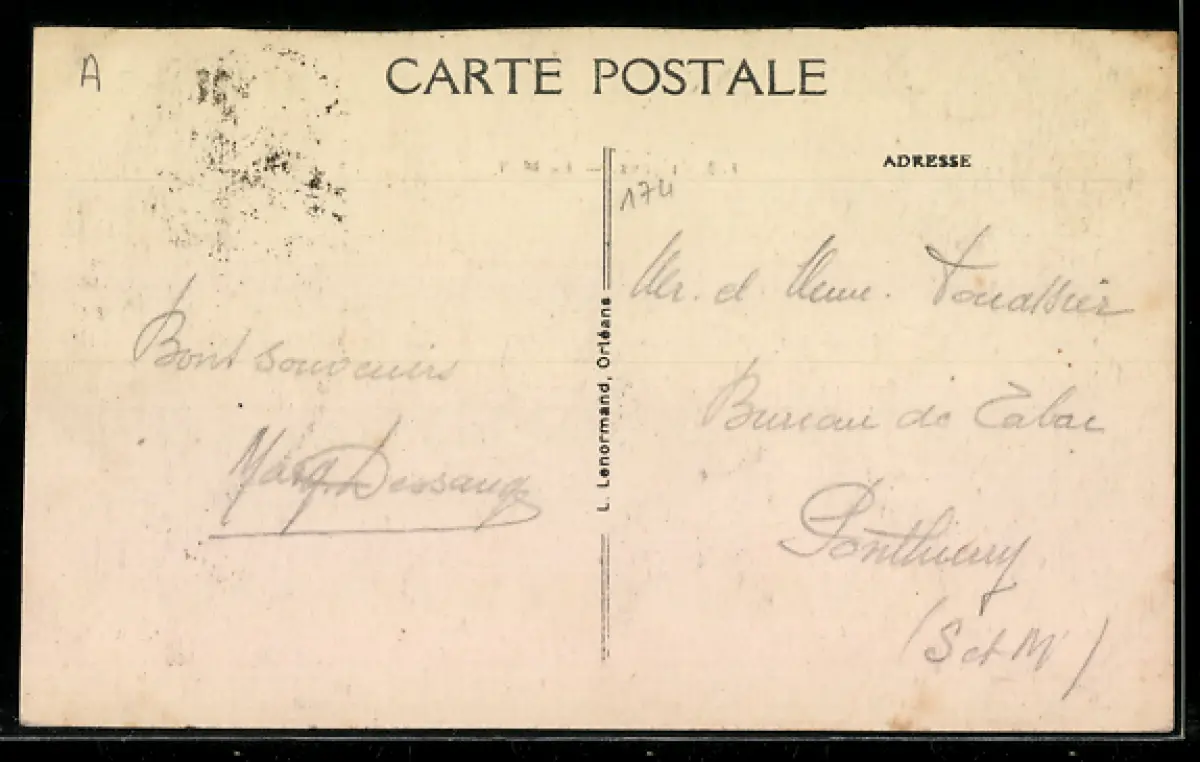 A
CARTE POSTALE
ADRESSE
174
Bons souvenirs
L. Lenormand, Orléans
Mr. et Mme.
Bureau de Tabac
Ponthierry
(S et M)